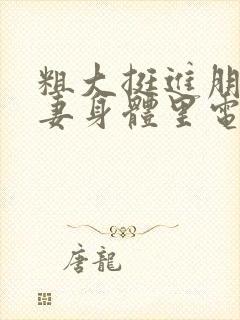 粗大挺進朋
妻身體里電
唐龍